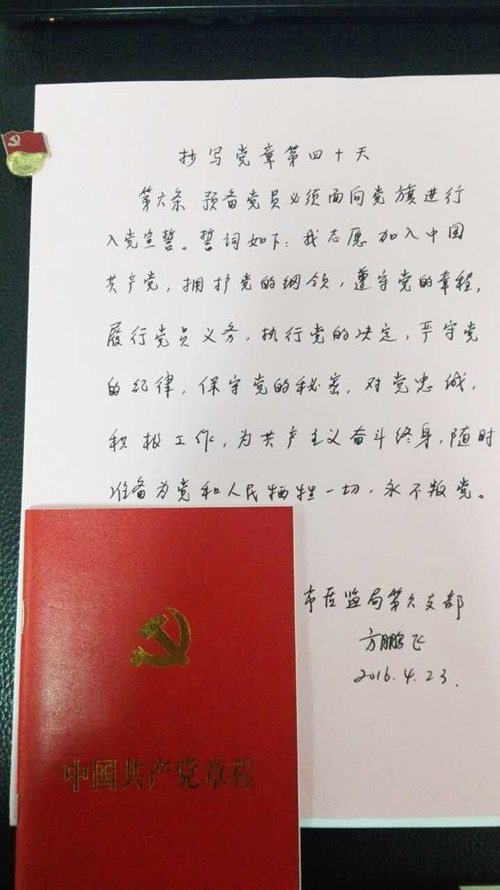 抄写党章第四十天
第六条 预备党员必须面向党旗进行
入党宣誓。誓词如下：我志愿加入中国
共产党，拥护党的纲领，遵守党的章程，
履行党员义务，执行党的决定，严守党
的纪律，保守党的秘密，对党忠诚，
积极工作，为共产主义奋斗终身，随时
准备为党和人民牺牲一切，永不叛党。
市质监局第六支部
方鹏飞
2016.4.23.
中国共产党章程